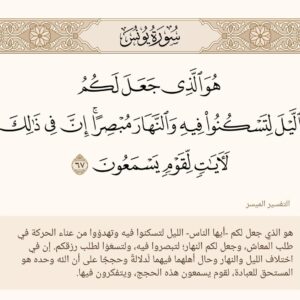 سُورَةُ يُونُسَ
هُوَ ٱلَّذِى جَعَلَ لَكُمُ
ٱلَّيْلَ لِتَسْكُنُوا۟ فِيهِ وَٱلنَّهَارَ مُبْصِرًا ۚ إِنَّ فِى ذَٰلِكَ
لَـَٔايَـٰتٍ لِّقَوْمٍ يَسْمَعُونَ ٦٧
التفسير الميسر
هو الذي جعل لكم -أيها الناس- الليل لتسكنوا فيه وتهدؤوا من عناء الحركة في
طلب المعاش، وجعل لكم النهار؛ لتبصروا فيه، ولتسعَوْا لطلب رزقكم. إن في
اختلاف الليل والنهار وحال أهلهما فيهما لَدلالةً وحججًا على أن الله وحده هو
المستحق للعبادة، لقوم يسمعون هذه الحجج، ويتفكرون فيها.